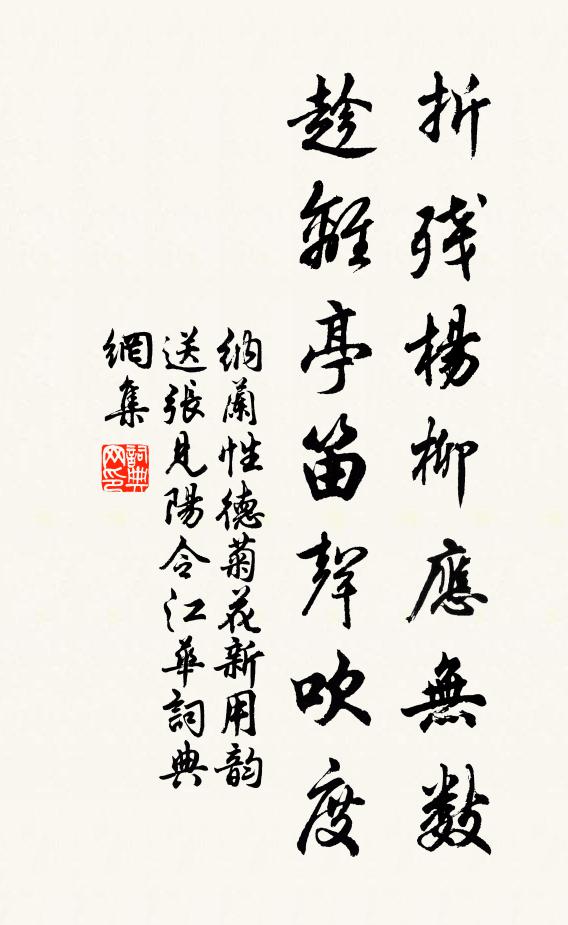 折残楊柳應無數
趁離亭笛聲吹度
納蘭性德菊花新用韵
送張見陽令江華詞典
網集
詞典网印